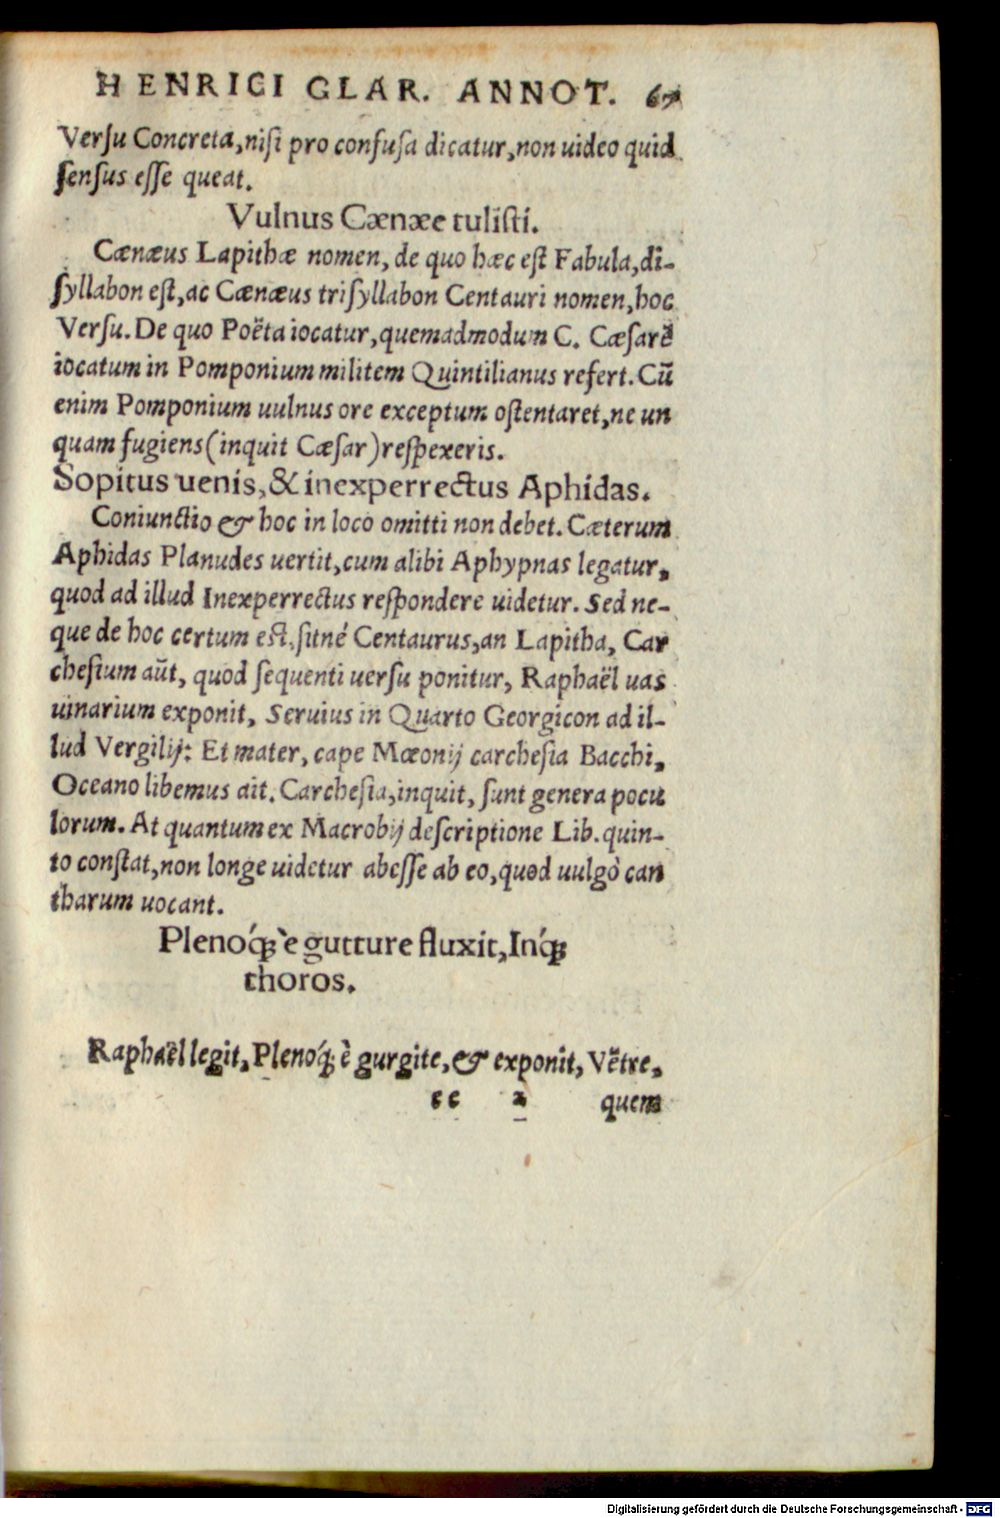 HENRICI GLAR. ANNOT. 67
Versu Concreta, nisi pro confusa dicatur, non uideo quid
sensus esse queat.
Vulnus Cænæe tulisti.
Cænæus Lapithæ nomen, de quo hæc est Fabula, di-
syllabon est, ac Cænæus trisyllabon Centauri nomen, hoc
Versu. De quo Poëta iocatur, quemadmodum C. Cæsarẽ
iocatum in Pomponium militem Quintilianus refert. Cũ
enim Pomponium uulnus ore exceptum ostentaret, ne un
quam fugiens (inquit Cæsar) respexeris.
Sopitus uenis, & inexperrectus Aphidas.
Coniunctio & hoc in loco omitti non debet. Cæterum
Aphidas Planudes uertit, cum alibi Aphypnas legatur,
quod ad illud Inexperrectus respondere uidetur. Sed ne-
que de hoc certum est, sitné Centaurus, an Lapitha, Car
chesium aũt, quod sequenti uersu ponitur, Raphaël uas
uinarium exponit, Seruius in Quarto Georgicon ad il-
lud Vergilij: Et mater, cape Mæonij carchesia Bacchi,
Oceano libemus ait. Carchesia, inquit, sunt genera pocu
lorum. At quantum ex Macrobij descriptione Lib. quin-
to constat, non longe uidetur abesse ab eo, quod uulgò can
tharum uocant.
Plenoq́ꝫ è gutture fluxit, Inq́ꝫ
thoros.
Raphaël legit, Plenoq́ꝫ è gurgite, & exponit, Vẽtre,
cc 2 quem
Digitalisierung gefördert durch die Deutsche Forschungsgemeinschaft - DFG